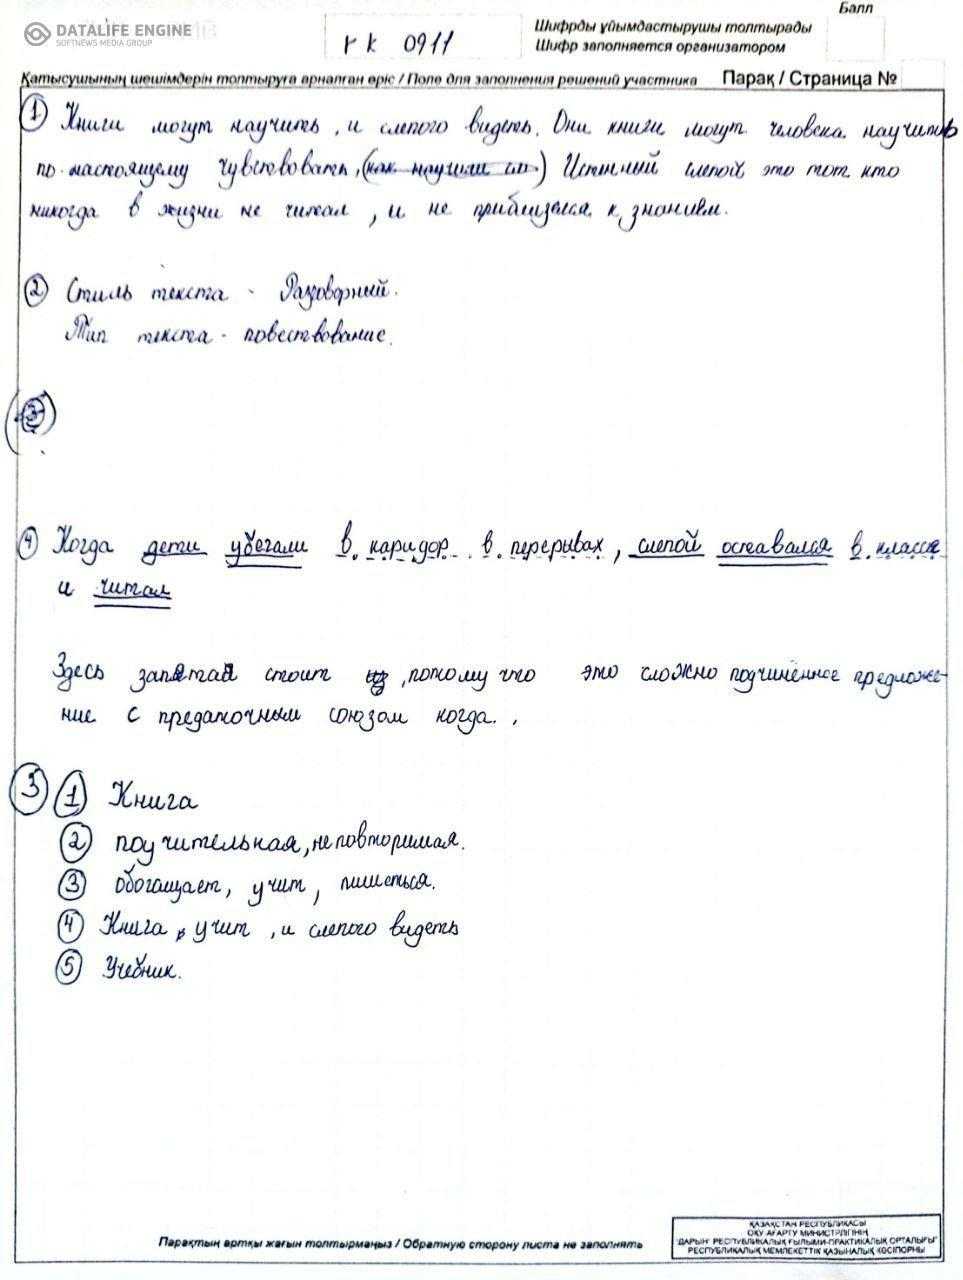 DATALIFE ENGINE
SOFTNEWS MEDIA GROUP
rk 0911
Балл
Шифрды ұйымдастырушы толтырады
Шифр заполняется организатором
Қатысушының шешімдерін толтыруға арналған өріс / Поле для заполнения решений участника Парақ / Страница №
1 Книги могут научить, и слепого видеть. Они книги могут человека научить
по-настоящему чувствовать, (как научили) Истиный слепой это тот кто
никогда в жизни не читал, и не приблизелся к знанием.
2 Стиль текста - Разговорный.
Тип текста - повествование.
3
4 Когда дети убегали в каридор в перерывах, слепой оставался в классе
и читал
Здесь запятай стоит, потому что это сложно подчинённое предложе-
ние с предаточным союзом когда.
3 1 Книга
2 поучительная, неповторимая.
3 обогащает, учит, пишеться.
4 Книга, учит, и слепого видеть
5 Учебник.
Парақтың артқы жағын толтырмаңыз / Обратную сторону листа не заполнять
ҚАЗАҚСТАН РЕСПУБЛИКАСЫ
ОҚУ-АҒАРТУ МИНИСТРЛІГІНІҢ
"ДАРЫН" РЕСПУБЛИКАЛЫҚ ҒЫЛЫМИ-ПРАКТИКАЛЫҚ ОРТАЛЫҒЫ"
РЕСПУБЛИКАЛЫҚ МЕМЛЕКЕТТІК ҚАЗЫНАЛЫҚ КӘСІПОРНЫ